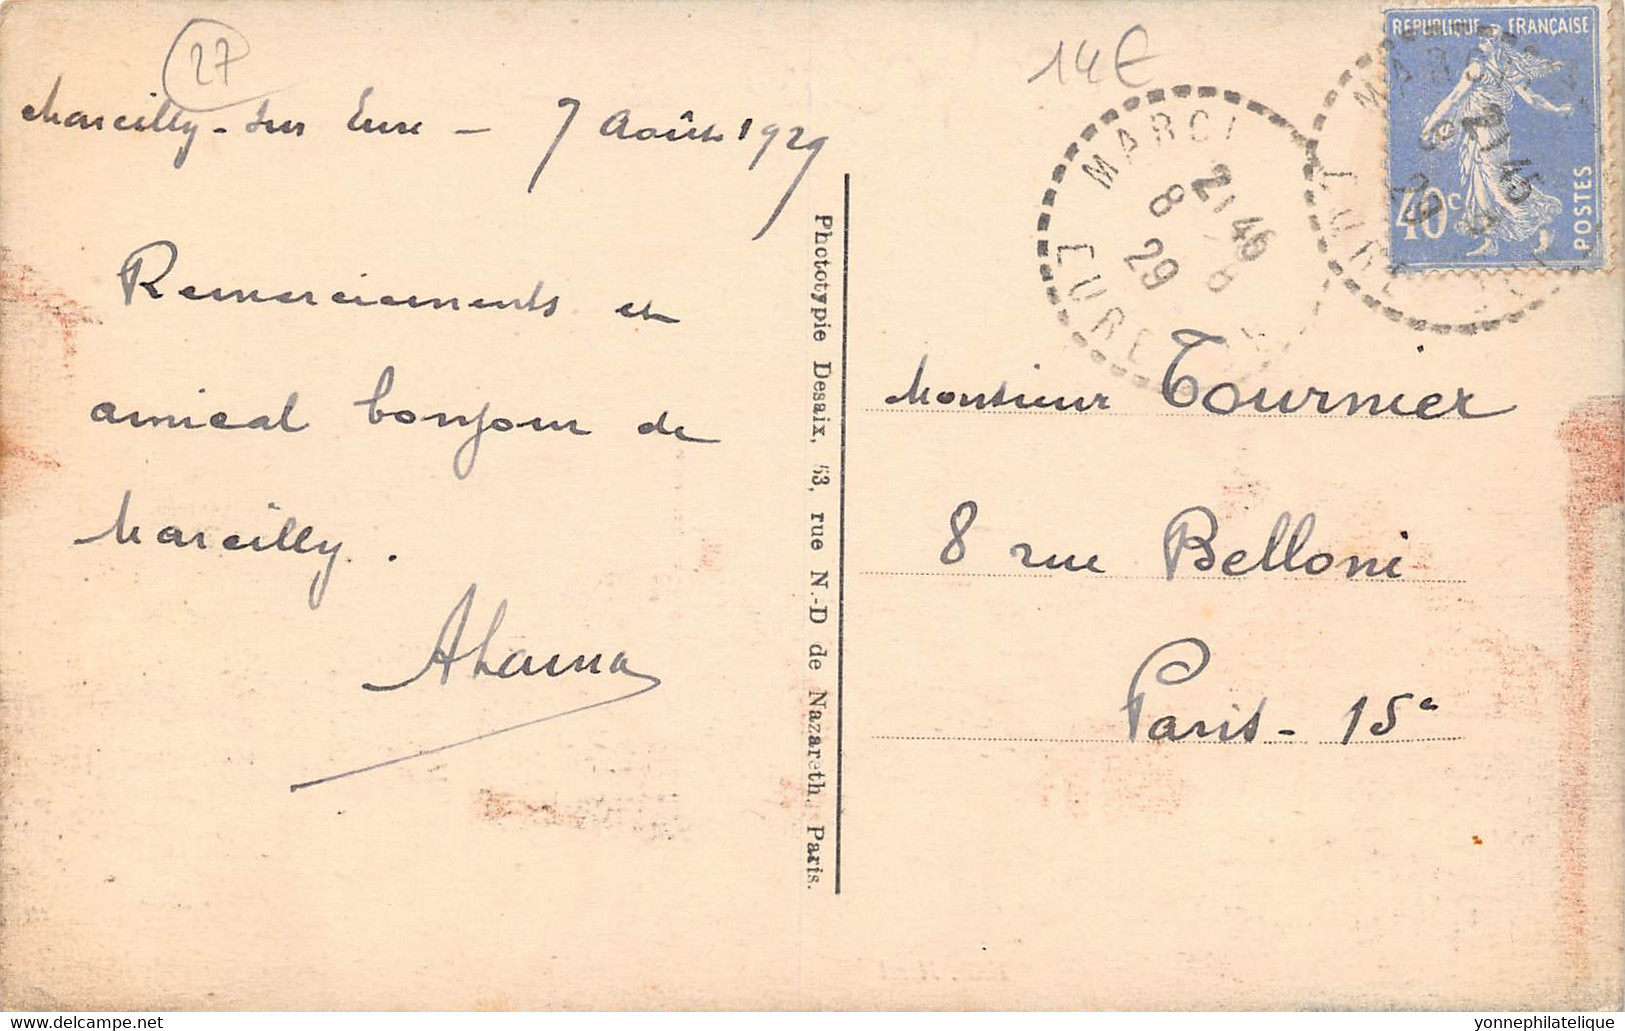 27
14€
Marcilly-sur Eure - 7 Août 1929
Remerciements et
amical bonjour de
Marcilly.
Phototypie Desaix, 53, rue N.-D de Nazareth. Paris.
REPUBLIQUE FRANÇAISE
40c
POSTES
MARCI
21 45
8 8
29
EURE
Monsieur Tournier
8 rue Belloni
Paris - 15e
yonnephilatelique